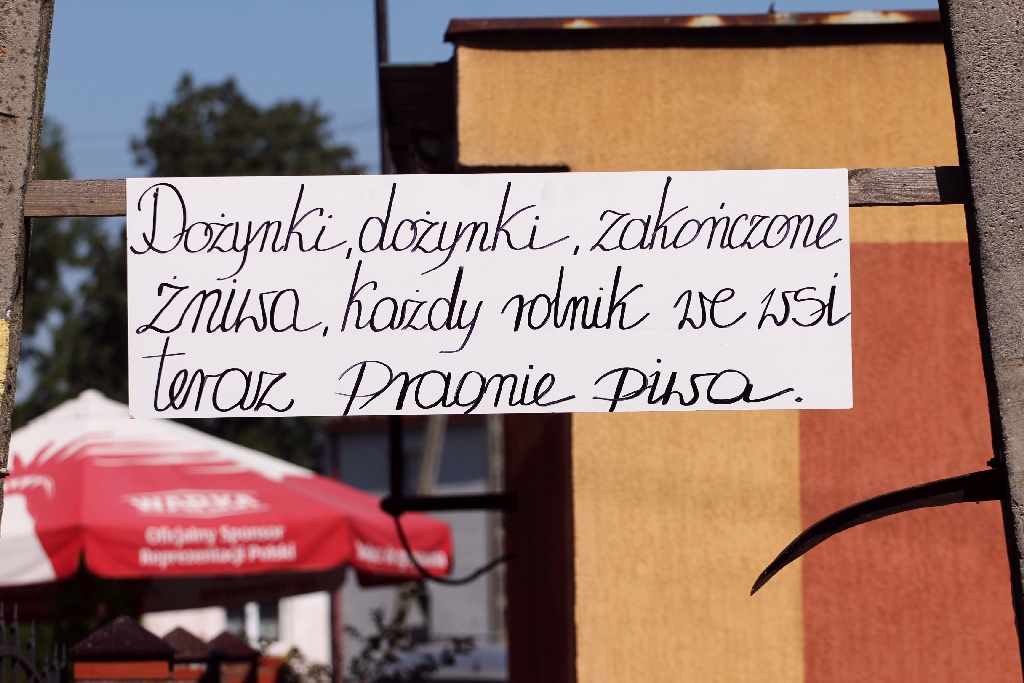 Dożynki, dożynki, zakończone
żniwa, każdy rolnik we wsi
teraz pragnie piwa.
WARKA
Oficjalny Sponsor
Reprezentacji Polski